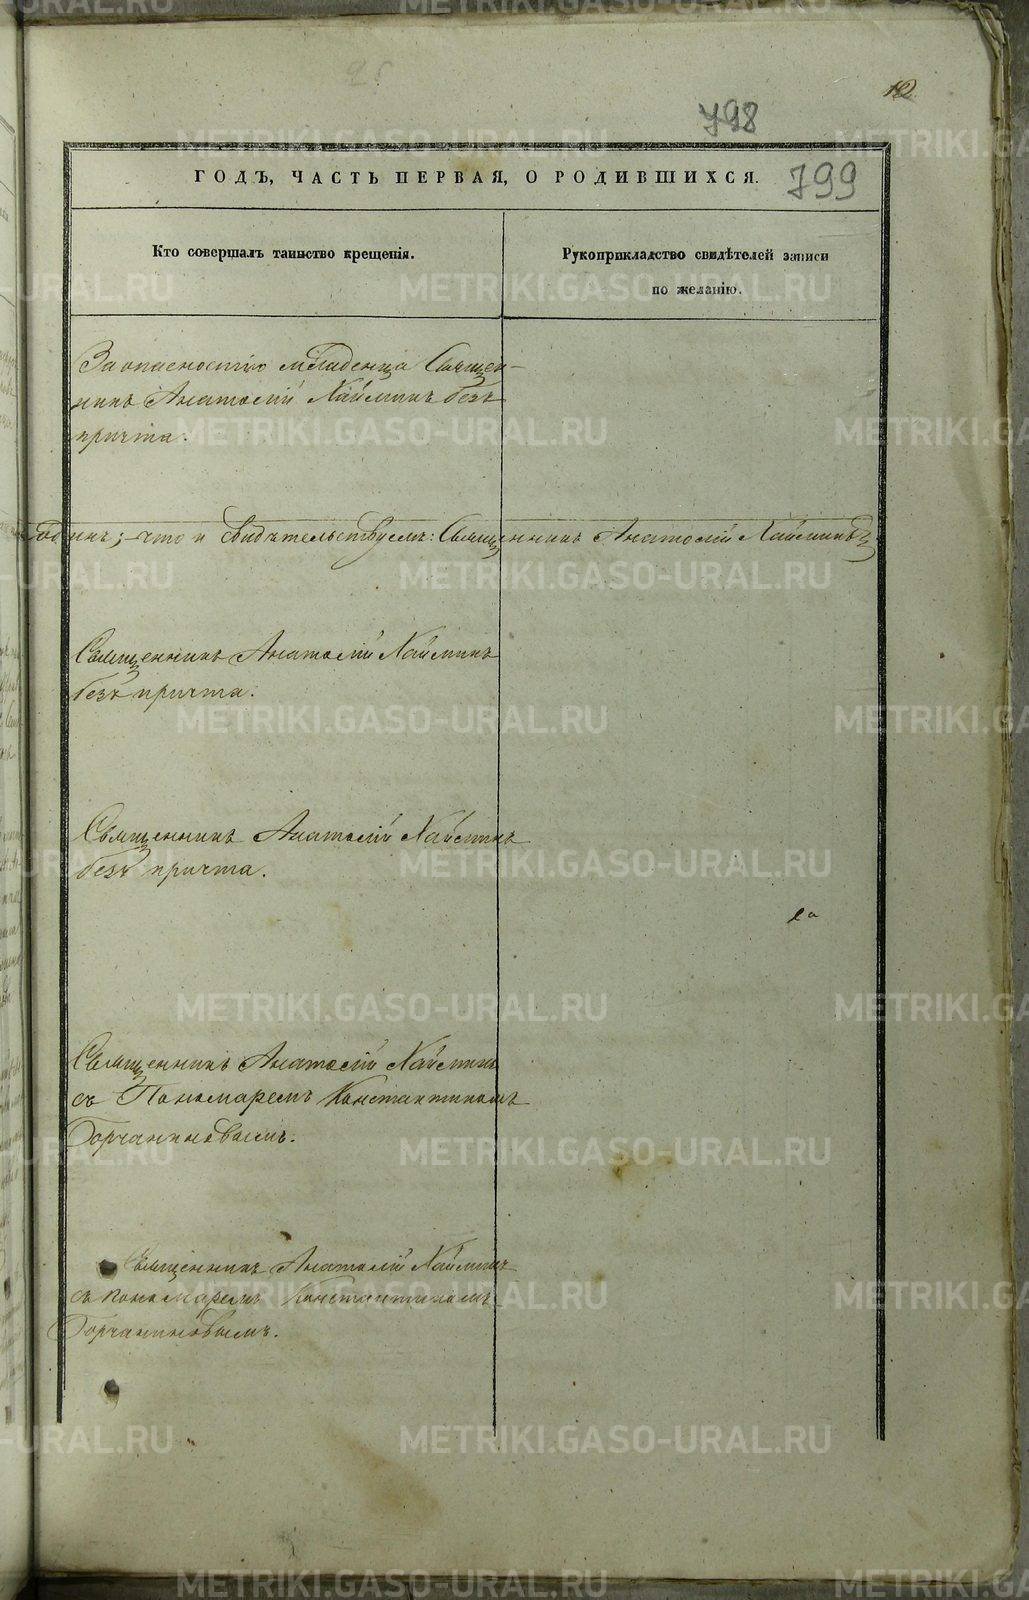 12
798
799
ГОДЪ, ЧАСТЬ ПЕРВАЯ, О РОДИВШИХСЯ.
Кто совершалъ таинство крещенія.
Рукоприкладство свидѣтелей записи
по желанію.
За опасностію младенца Священ-
никъ Анатолій Хайминъ безъ
причта.
один; что и свидѣтельствуемъ: Священникъ Анатолій Хайминъ
Священникъ Анатолій Хайминъ
безъ причта.
Священникъ Анатолій Хайминъ
безъ причта.
Священникъ Анатолій Хайминъ
съ Пономаремъ Константиномъ
Горчаниновымъ.
Священникъ Анатолій Хайминъ
съ пономаремъ Константиномъ
Горчаниновымъ.
METRIKI.GASO-URAL.RU